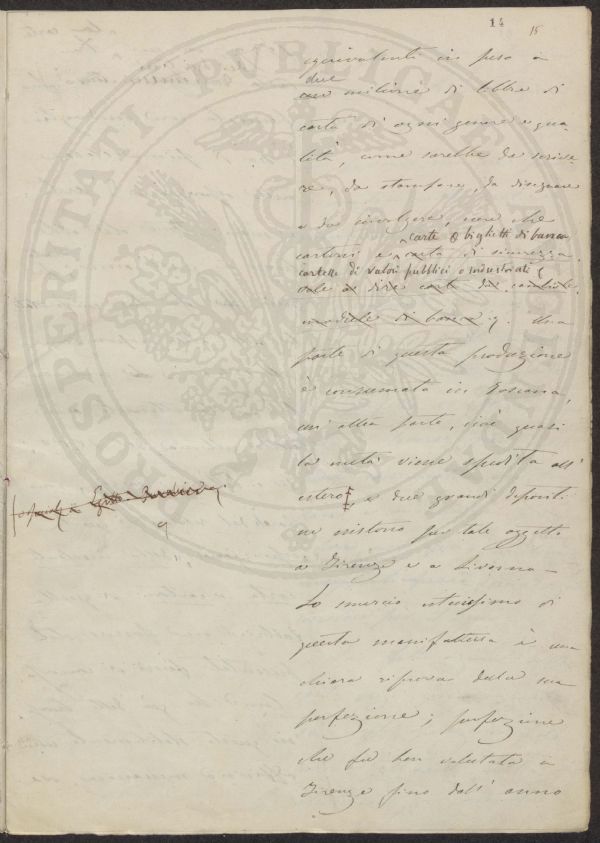 14
15
equivalenti in peso a
due
milioni di libbre di
carta di ogni genere e qua-
lità, come sarebbe da scrive-
re, da stampare, da disegnare
e da involgere, non che
carte o biglietti di banca
cartoni e carta di sicurezza
cartelle di valori pubblici o industriali
vale a dire carte da cambiale
di banca. Una
parte di questa produzione
è consumata in Toscana,
un' altra parte, cioè quasi
la metà viene spedita all'
estero, e due grandi depositi
ne esistono per tale oggetto
a Firenze e a Livorno —
Lo smercio estesissimo di
questa manifattura è una
chiara riprova della sua
perfezione; perfezione
che fu ben valutata a
Firenze fino dall' anno
PROSPERITATI PVBLICAE